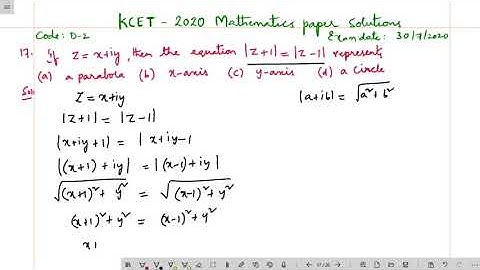 KCET - 2020 Mathematics paper solutions
Code: D-2
Exam date: 30/7/2020
17. If Z = x+iy, then the equation |Z+1| = |Z-1| represents
(a) a parabola (b) x-axis (c) y-axis (d) a circle
Sol:
Z = x+iy
|a+ib| = √(a²+b²)
|Z+1| = |Z-1|
|x+iy+1| = |x+iy-1
|(x+1)+iy| = |(x-1)+iy|
√((x+1)²+y²) = √((x-1)²+y²)
(x+1)²+y² = (x-1)²+y²